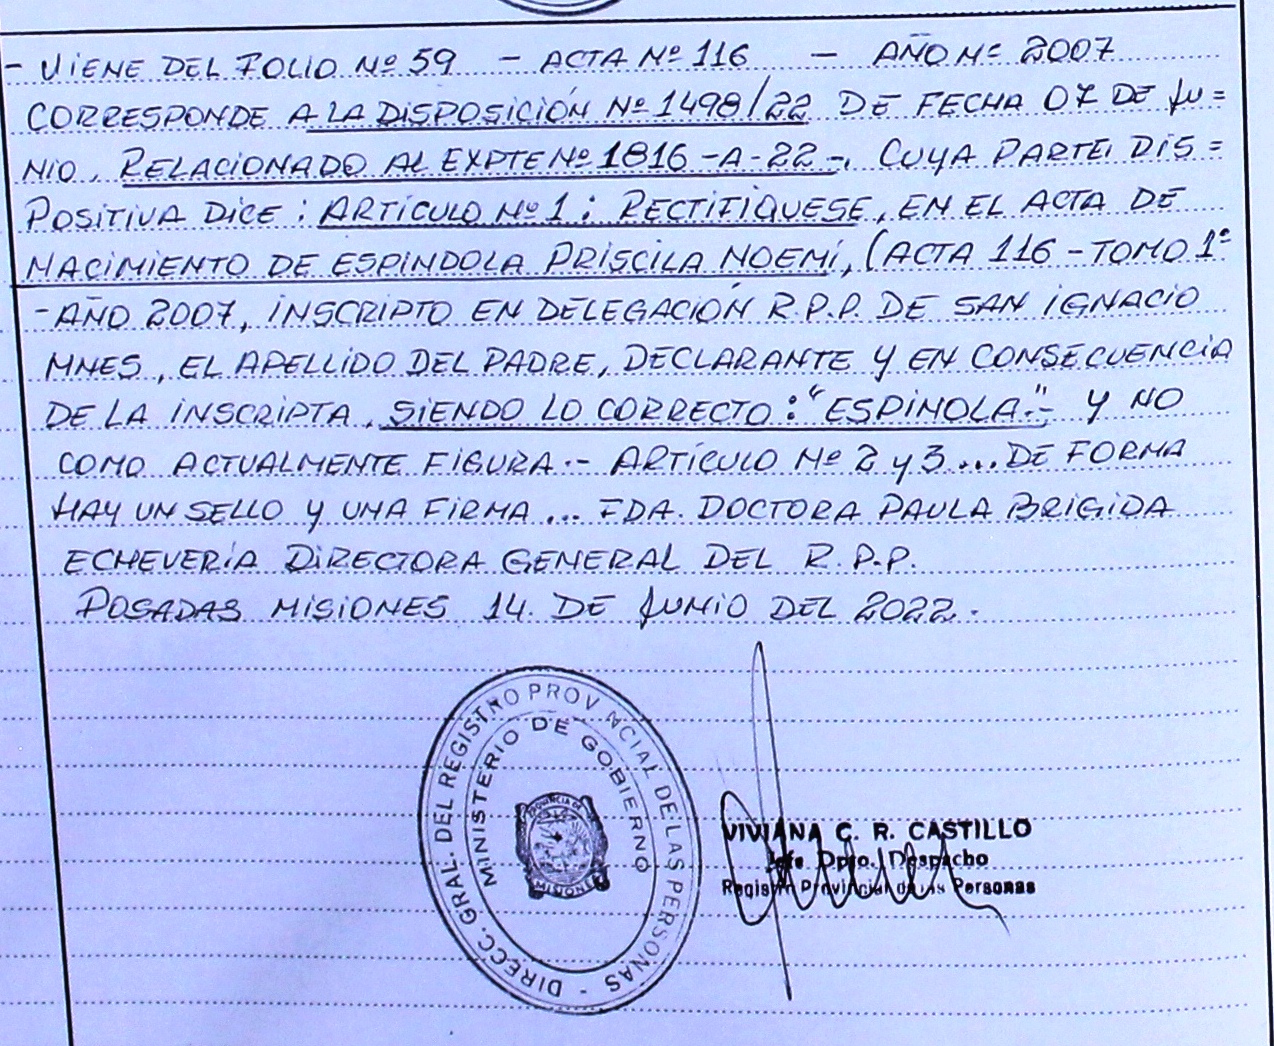 - VIENE DEL FOLIO Nº 59 - ACTA Nº 116 - AÑO Nº 2007
CORRESPONDE A LA DISPOSICIÓN Nº 1498/22 DE FECHA 07 DE JU=
NIO. RELACIONADO AL EXPTE Nº 1816-A-22-. CUYA PARTE DIS=
POSITIVA DICE: ARTÍCULO Nº 1: RECTIFIQUESE, EN EL ACTA DE
NACIMIENTO DE ESPINDOLA PRISCILA NOEMÍ, (ACTA 116 - TOMO 1º
- AÑO 2007, INSCRIPTO EN DELEGACIÓN R.P.P. DE SAN IGNACIO
MNES, EL APELLIDO DEL PADRE, DECLARANTE Y EN CONSECUENCIA
DE LA INSCRIPTA, SIENDO LO CORRECTO: "ESPINOLA"- Y NO
COMO ACTUALMENTE FIGURA.- ARTÍCULO Nº 2 Y 3 ... DE FORMA
HAY UN SELLO Y UNA FIRMA ... FDA. DOCTORA PAULA BRIGIDA
ECHEVERÍA DIRECTORA GENERAL DEL R.P.P.
POSADAS MISIONES 14. DE JUNIO DEL 2022.
DIRECC. GRAL. DEL REGISTRO PROVINCIAL DE LAS PERSONAS -
MINISTERIO DE GOBIERNO
PROVINCIA DE
MISIONES
VIVIANA C. R. CASTILLO
Jefe Dpto. Despacho
Registro Provincial de las Personas